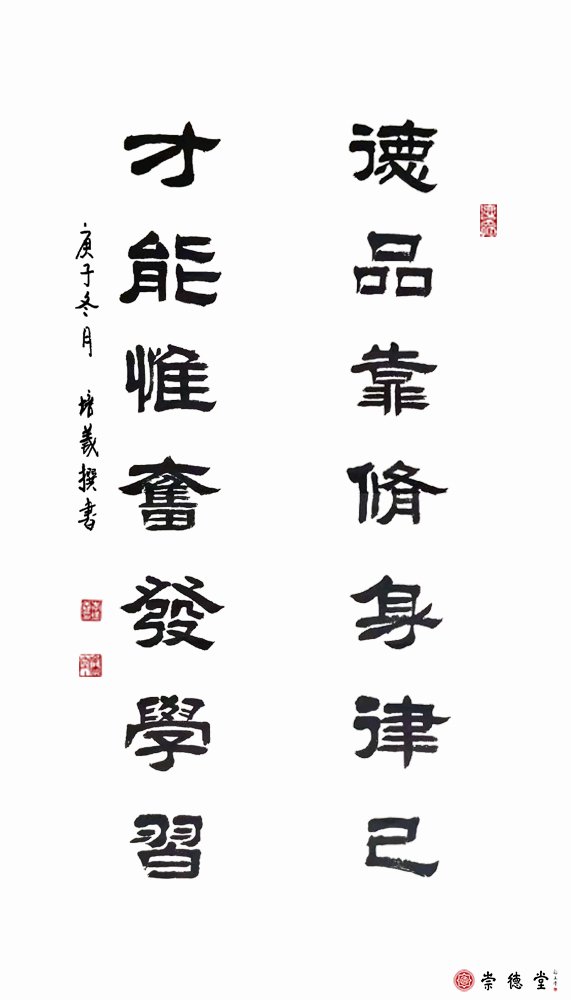 德品靠脩身律己
才能惟奮發學習
庚子冬月 培義撰书
崇德堂